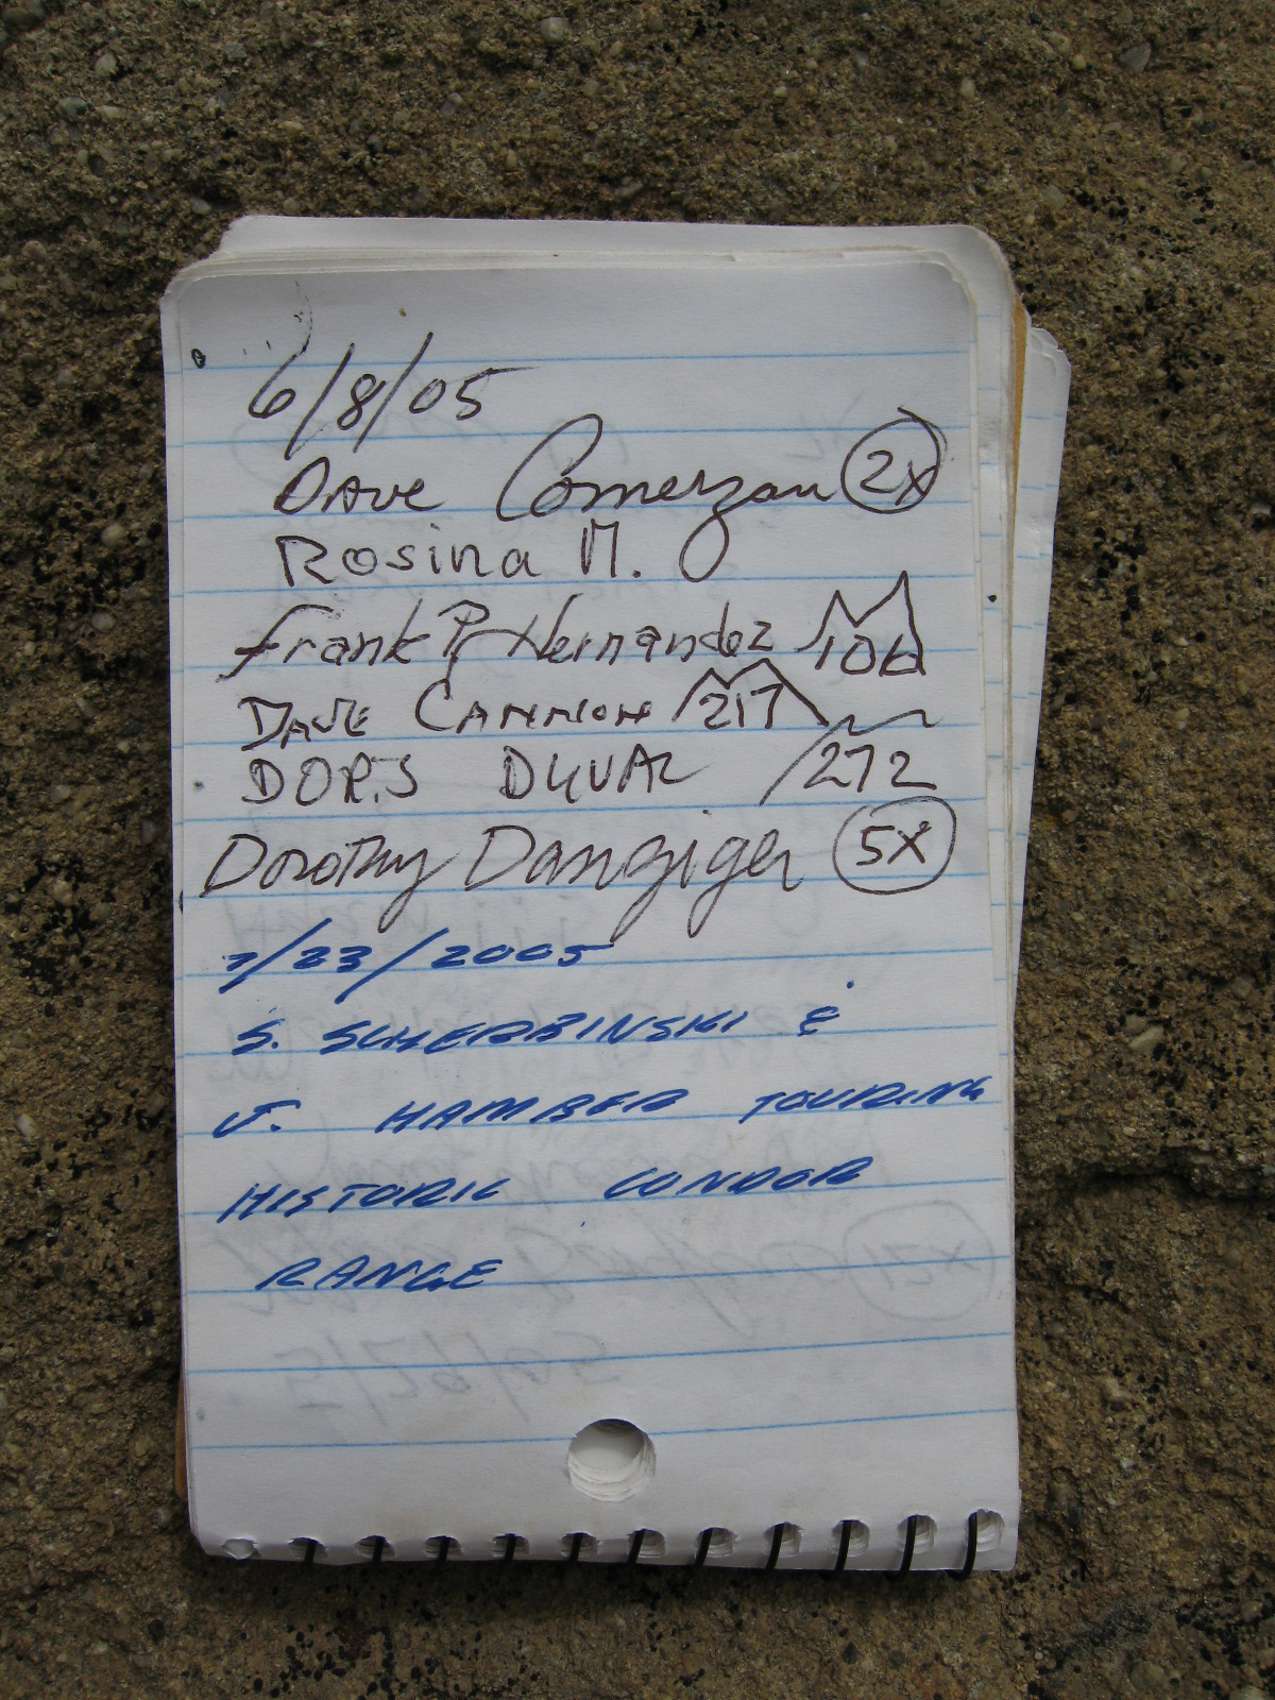 6/8/05
DAVE Comerzan 2X
Rosina M.
Frank P Hernandez 106
DAVE CANNON 217
DORIS DUVAL 272
Dorothy Danziger 5X
7/23/2005
S. SCHERBINSKI &
J. HAMBER TOURING
HISTORIC CONDOR
RANGE